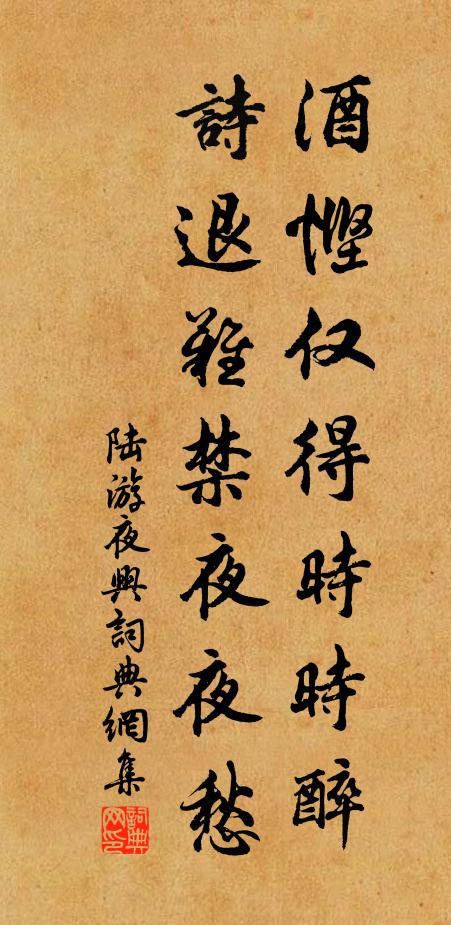 酒慳仅得時時醉
詩退難禁夜夜愁
陆游夜興詞典網集
詞典网印